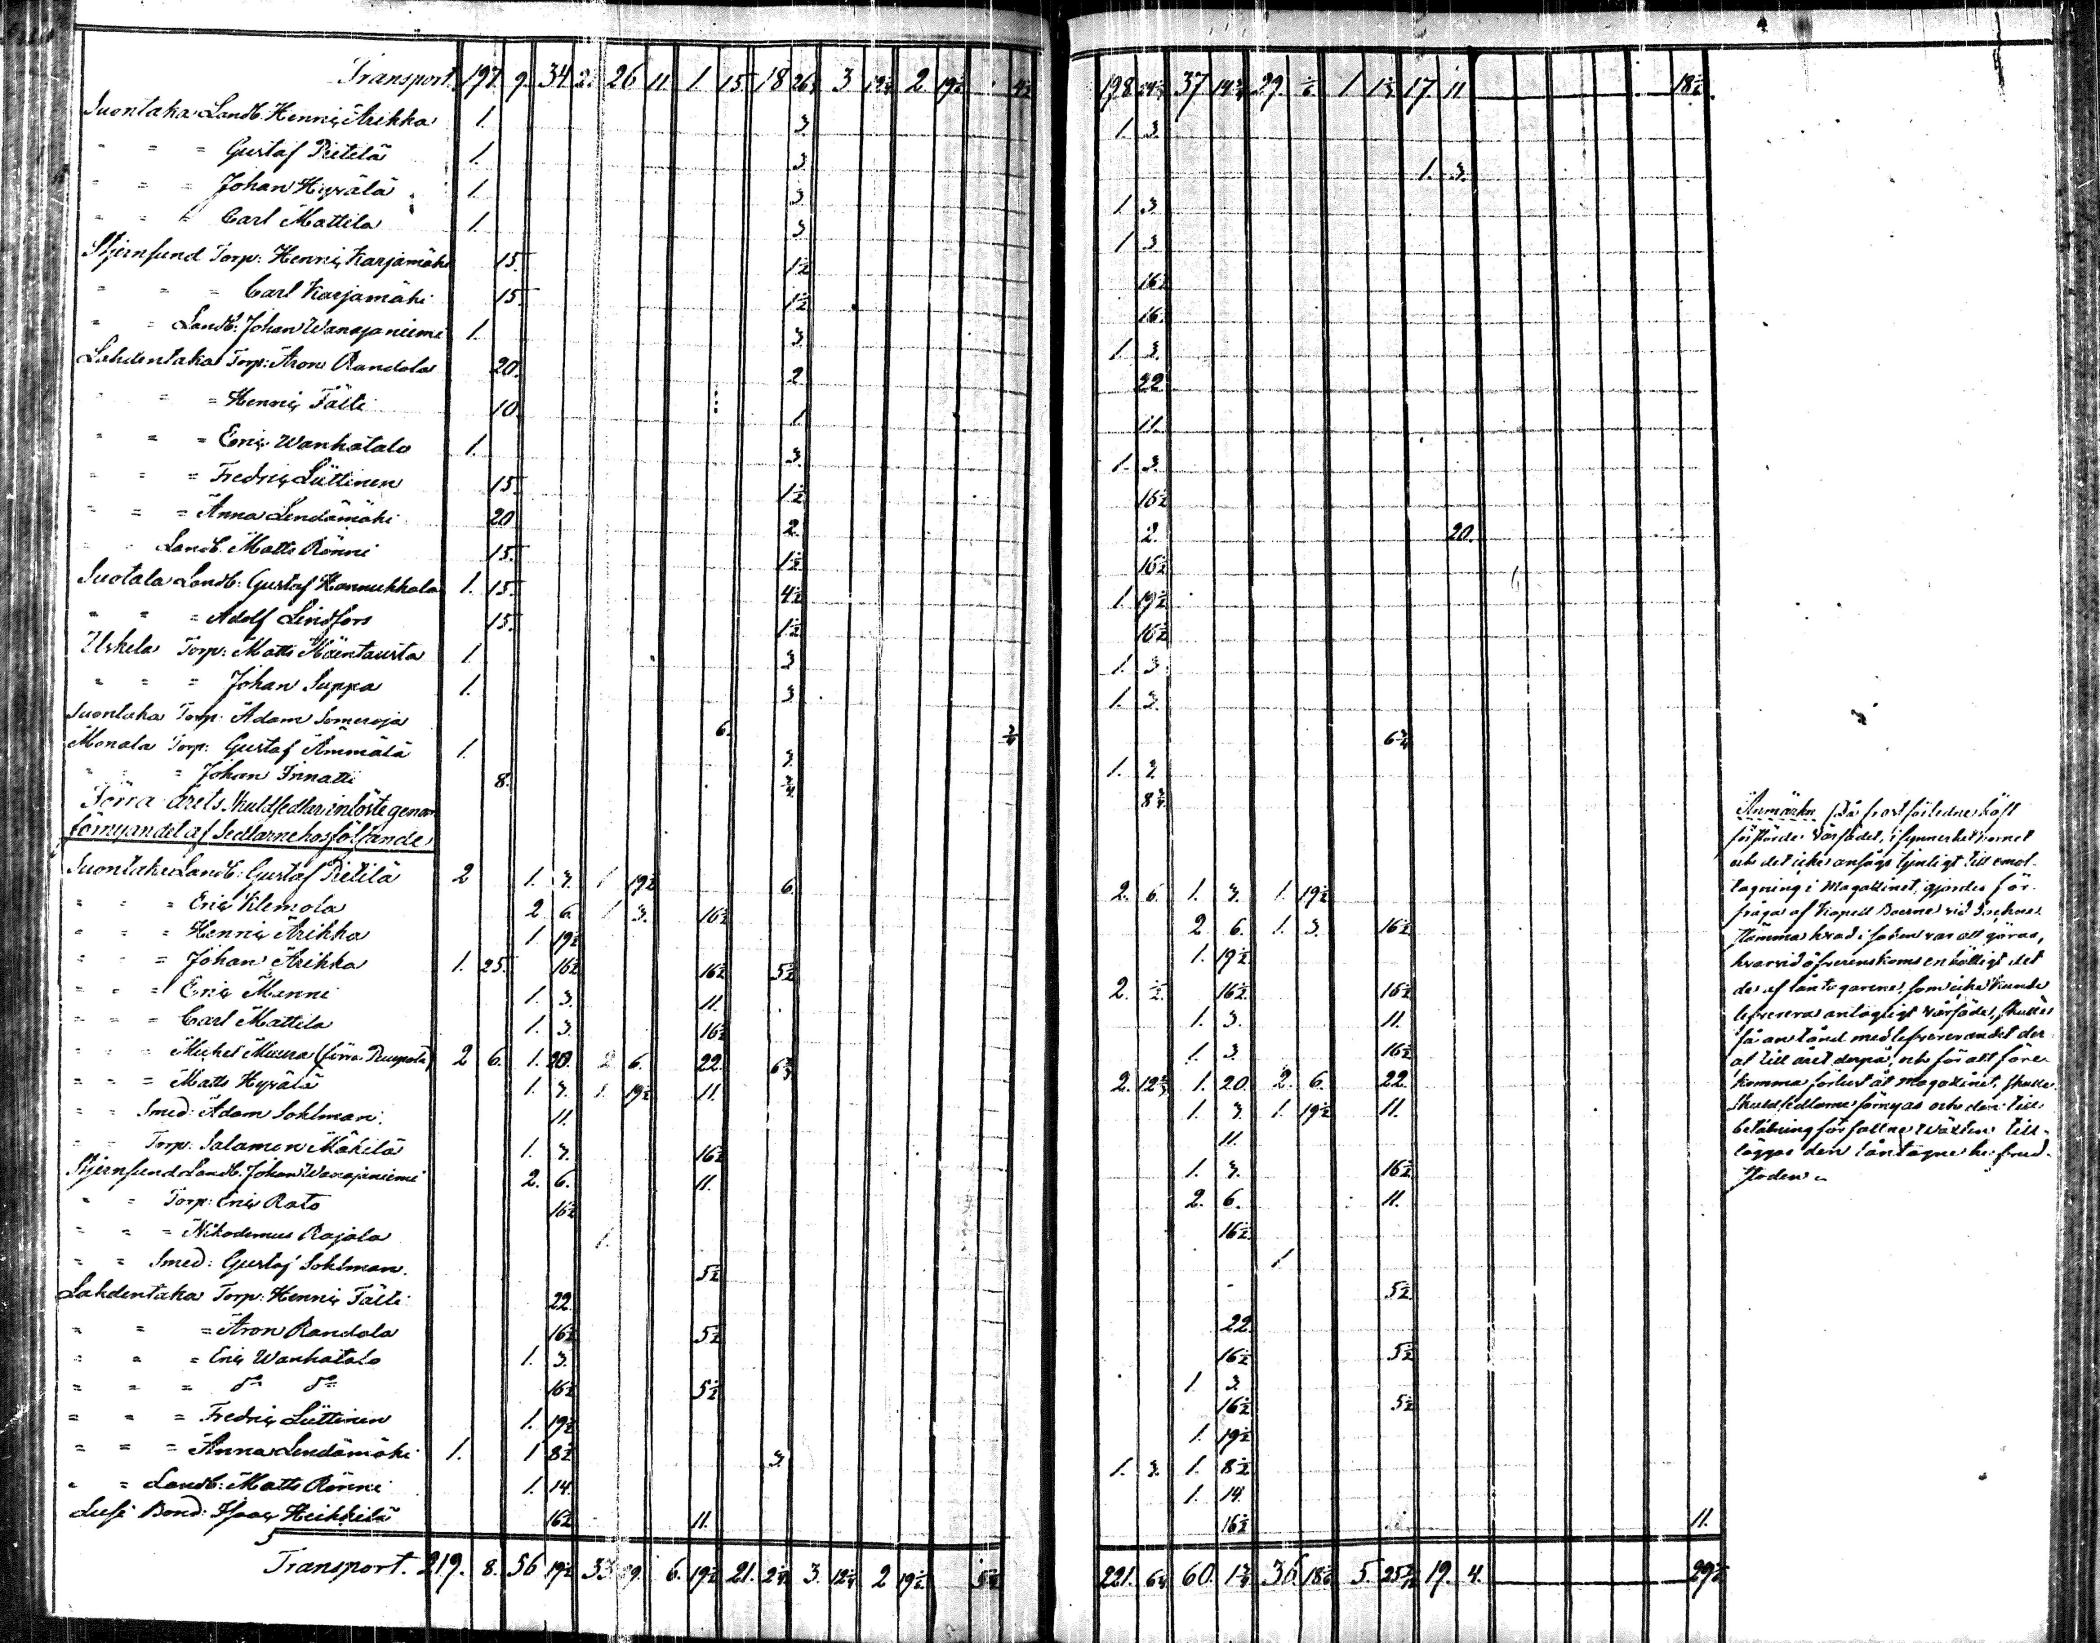 Transport. 197. 9. 34 2. 26 11. 1 15. 18 26¼ 3 12¾ 2. 19½ 4½ 198 24¾ 37 14¾ 29. ½ 1 1¾ 17. 11 18½
Suontaka Landb. Henric Arikka 1. 3. 1. 3.
" = = Gustaf Pietilä 1. 3. 1. 3.
" = = Johan Hyvälä 1. 3. 1. 3.
" = " Carl Mattila 1. 3. 1. 3
Stjernsund Torp: Henric Karjamäki 15. 1½ 16½
" " = Carl Karjamäki 15. 1½ 16.
" = Landb: Johan Wanajaniemi 1. 3. 1. 3.
Lahdentaka Torp: Aron Randala 20. 2. 22
" " = Henric Tälli 10. 1. 11.
" = = Eric Wanhatalo 1. 3. 1. 3.
" = = Fredric Lüttinen 15. 1½ 16½
" = = Anna Lendämäki 20 2. 2. 20.
" = Landb. Matts Rönni 15. 1½ 16½
Suotala Landb: Gustaf Hannukkala 1. 15. 4½ 1. 19½
" " = Adolf Lindfors 15. 1½ 16½
Uskela Torp: Matts Mäentausta 1. 3 1. 3.
" = = Johan Suppa 1. 3 1. 3.
Suontaka Torp: Adam Someroja 6. ¾ 6¾
Monala Torp: Gustaf Ämmälä 1. 3. 1. 3.
" = Johan Innatti 8. ¾ 8¾
Förra Årets Skuldsedlar inlöste genom
förnyandet af Sedlarne hos följande
Suontaka Landb: Gustaf Pietilä 2 1. 3. 1 19½ 6. 2. 6. 1. 3. 1. 19½
" = = Eric Klemola 2. 6. 1 3. 16½ 2. 6. 1. 3. 16½
" = = Henric Arikka 1. 19½ 1. 19½
= = = Johan Arikka 1. 25. 16½ 16½ 5½ 2. ½ 16½ 16½
= = = Eric Manni 1. 3. 11. 1. 3. 11.
= = = Carl Mattila 1. 3. 16½ 1. 3. 16½
= = = Michel Muura (förra Puupola) 2 6. 1. 20. 2 6. 22. 6¾ 2. 12¾ 1. 20. 2. 6. 22.
= = = Matts Hyvälä 1. 3. 1. 19½ 11. 1. 3. 1. 19½ 11.
" = Smed: Adam Sohlman. 11. 11.
" = Torp: Salomon Mäkilä 1. 3. 16½ 1. 3. 16½
Stjernsund Landb. Johan Wanajaniemi 2. 6. 11. 2. 6. 11.
" = Torp: Eric Rato 16½ 16½
" = = Nikodemus Rajala 1. 1
" = Smed: Gustaf Sohlman. 5½ 5½
Lahdentaka Torp: Henric Tälli 22. 22.
" = = Aron Randala 16½ 5½ 16½ 5½
= " = Eric Wanhatalo 1. 3. 1. 3
= = = do do 16½ 5½ 16½ 5½
= = = Fredric Lüttinen 1. 19½ 1. 19½
= = = Anna Lendämäki 1. 1 8½ 3. 1. 3. 1. 8½
" = Landb: Matts Rönni 1. 14. 1. 14.
Lusi Bond: Isaac Heikkilä 16½ 11. 16½ 11.
Transport. 219. 8. 56 19½ 33 29. 6. 19½ 21. 2¾ 3. 12¾ 2 19½ 5¼ 221. 6¼ 60. 1¾ 36 18½ 5. 25½ 19. 4. 29½
Anmärkn. Då frost förledne höst
förstörde Vårsädet, i synnerhet kornet
och det icke ansågs tjenligt till emot-
tagning i Magazinet, gjordes för-
fråga af Kapell Boerne vid Sockne-
stämma hvad i saken var att göras,
hvarvid öfverenskoms enhälligt att
de af låntagarene, som icke kunde
leverera antagligt Vårsäde, skulle
få anstånd med levererandet der-
af till året derpå, och för att före-
komma förlust åt Magazinet, skulle
Skuldsedlarne förnyas och den till
betalning förfallne växten till-
läggas den låntagne hufvud-
stoden.